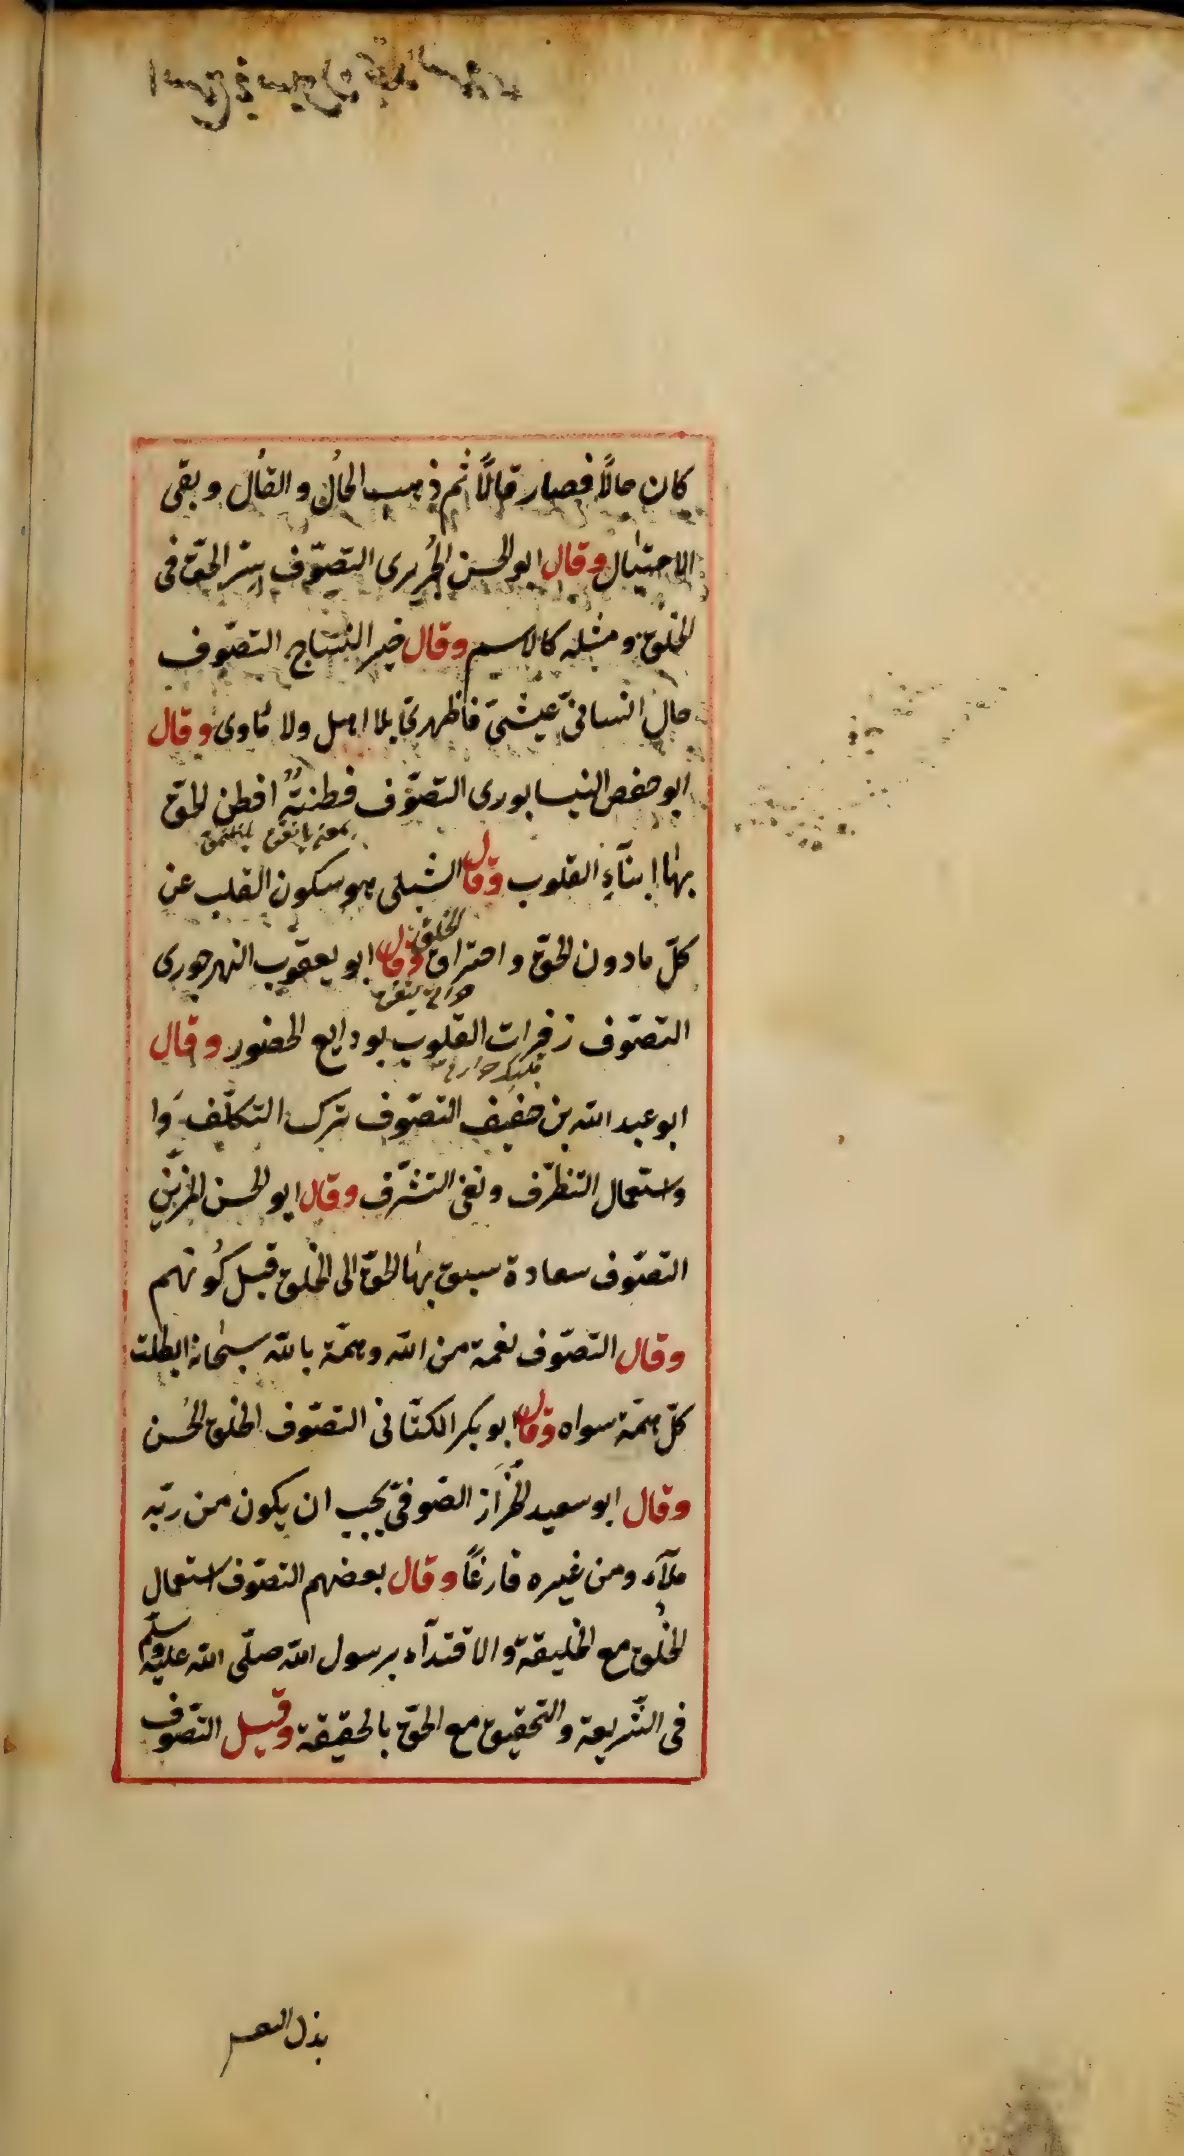 كان حالًا فصار قالًا ثم ذهب الحال والقال وبقى
الاحتيال وقال ابو الحسن الجريرى التصوّف سرّ الحقّ فى
الخلق ومثله كالاسم وقال خير النساج التصوّف
حال انسانىّ عيشىّ فاظهرىّ بلا اهل ولا مأوى وقال
ابو حفص النيسابورى التصوّف فطنةٌ افطن الحق
بها ابنآء القلوب وقال الشبلى هو سكون القلب عن
كلّ ما دون الحقّ واحتراق وقال ابو يعقوب النهرجورى
الخلق
التصوّف زفرات القلوب بودايع الحضور وقال
ابو عبد الله بن خفيف التصوّف ترك التكلّف وا
واستعمال التظرّف ونفى التشرّف وقال ابو الحسن المزيّن
التصوّف سعادة سبق بها الحقّ الى الخلق قبل كونهم
وقال التصوّف نعمة من الله وهمّة بالله سبحانه ابطلت
كلّ همّة سواه وقال ابو بكر الكتّانى التصوّف الخلق الحسن
وقال ابو سعيد الخرّاز الصّوفىّ يجب ان يكون من ربّه
ملآء ومن غيره فارغًا وقال بعضهم التصوّف استعمال
الخُلق مع الخليقة والاقتدآء برسول الله صلّى الله عليه وسلّم
فى الشّريعة والتحقيق مع الحقّ بالحقيقة وقيل التصوّف
بذل